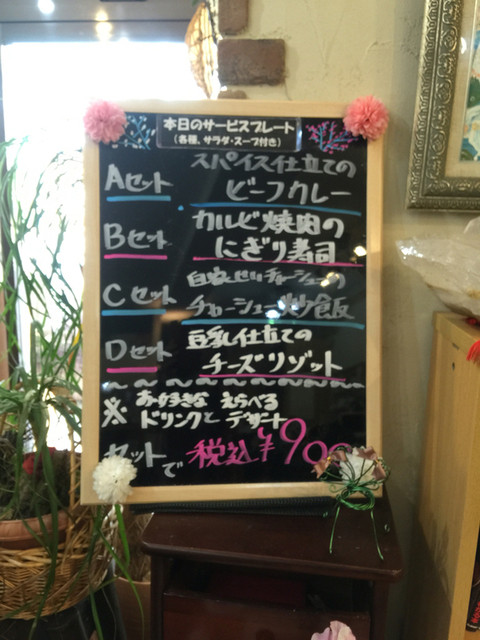 本日のサービスプレート
(各種、サラダ・スープ付き)
Aセット スパイス仕立ての
ビーフカレー
Bセット カルビ焼肉の
にぎり寿司
Cセット 自家製チャーシューの
チャーシュー炒飯
Dセット 豆乳仕立ての
チーズリゾット
※ お好きな えらべる
ドリンクと デザート
セットで 税込¥900